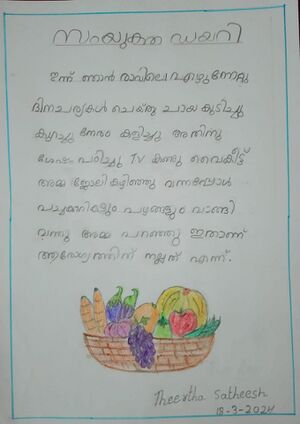 സംയുക്ത ഡയറി
ഇന്ന് ഞാൻ രാവിലെ എഴുന്നേറ്റു
ദിനചര്യകൾ ചെയ്തു ചായ കുടിച്ചു
കുറച്ചു നേരം കളിച്ചു അതിനു
ശേഷം പഠിച്ചു TV കണ്ടു വൈകീട്ട്
അമ്മ ജോലി കഴിഞ്ഞു വന്നപ്പോൾ
പച്ചക്കറികളും പഴങ്ങളും വാങ്ങി
വന്നു അമ്മ പറഞ്ഞു ഇതാണ്
ആരോഗ്യത്തിന് നല്ലത് എന്ന്.
Theertha Satheesh
18-3-2024